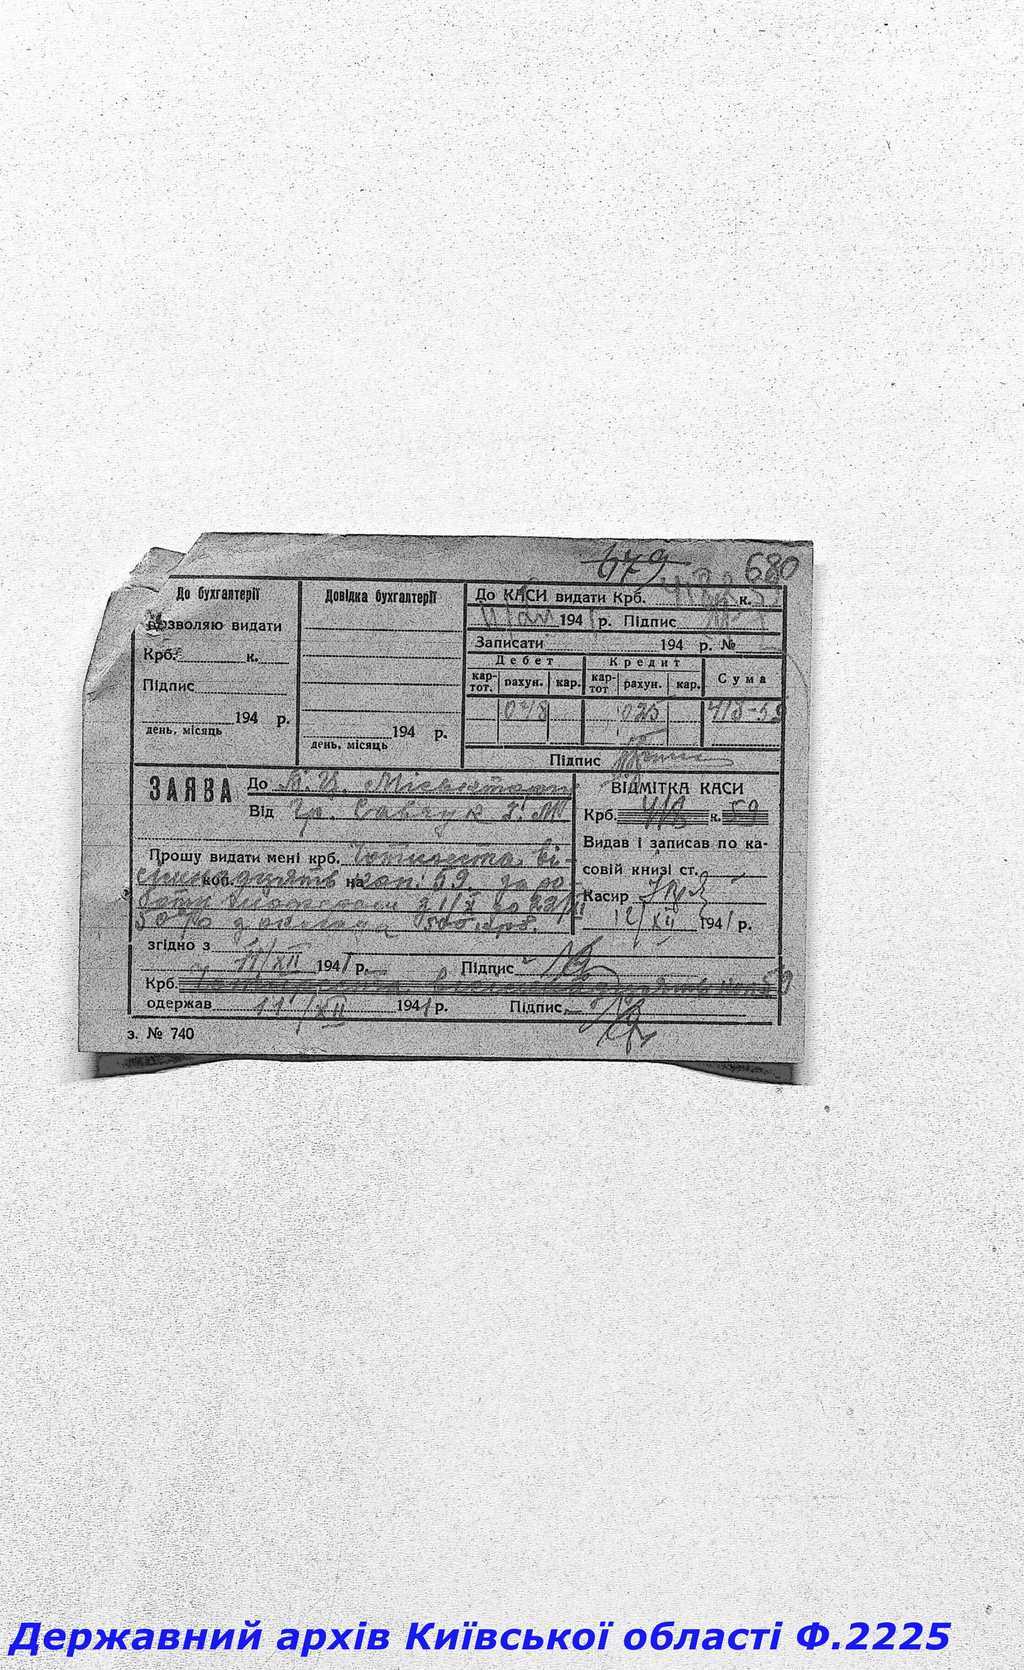 679 680
До бухгалтерії
Дозволяю видати
Крб. к.
Підпис
194 р.
день, місяць
Довідка бухгалтерії
194 р.
день, місяць
До КАСИ видати Крб. 418 к.
11/XII 1941 р. Підпис
Записати 194 р. №
Дебет Кредит Сума
кар-тот. рахун. кар. кар-тот рахун. кар.
048 025 418-59
Підпис
ЗАЯВА До
Від Гр. Савчук
Прошу видати мені крб. Чотириста ві-
сімнадцять коп. на коп. 59. за ро-
боти з 1/X по
50% з окладу 500 крб.
згідно з
11/XII 1941 р. Підпис
Крб. Чотириста вісімнадцять коп. 59
одержав 11/XII 1941 р. Підпис
ВІДМІТКА КАСИ
Крб. 418 к. 59
Видав і записав по ка-
совій книзі ст.
Касир
12/XII 1941 р.
з. № 740
Державний архів Київської області Ф.2225